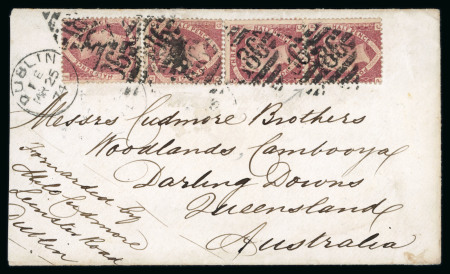 DUBLIN
MY 25
74
Messrs Cudmore Brothers
Woodlands, Cambooya
Darling Downs
Queensland
Australia
Forwarded by
Cudmore
Leinster Road
Dublin